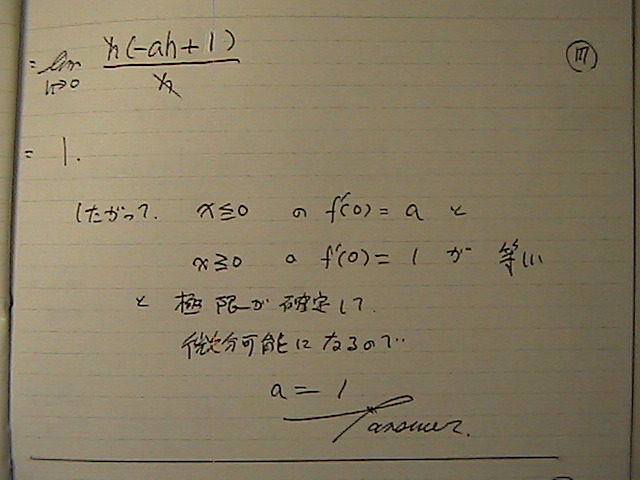 = lim h→0 h(-ah+1)/h
III
= 1.
したがって. x≦0 の f'(0) = a と
x≧0 の f'(0) = 1 が 等しい
と 極限が確定して.
微分可能になるので‥
a = 1
answer.